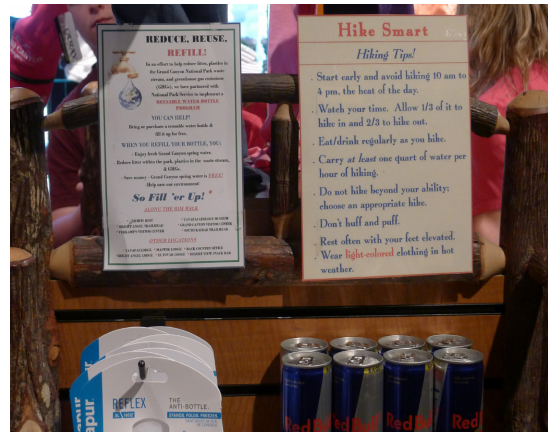 REDUCE, REUSE,
REFILL!
In an effort to help reduce litter, plastics in
the Grand Canyon National Park waste
stream, and greenhouse gas emissions
(GHGs), we have partnered with
National Park Service to implement a
REUSABLE WATER BOTTLE
PROGRAM
YOU CAN HELP!
Bring or purchase a reusable water bottle &
fill it up for free.
WHEN YOU REFILL YOUR BOTTLE, YOU:
Enjoy fresh Grand Canyon spring water.
Reduce litter within the park, plastics in the waste stream,
& GHGs.
Save money - Grand Canyon spring water is FREE!
Help save our environment!
So Fill 'er Up!
ALONG THE RIM WALK
OTHER LOCATIONS
Hike Smart
Hiking Tips!
Start early and avoid hiking 10 am to
4 pm, the heat of the day.
Watch your time. Allow 1/3 of it to
hike in and 2/3 to hike out.
Eat/drink regularly as you hike.
Carry at least one quart of water per
hour of hiking.
Do not hike beyond your ability;
choose an appropriate hike.
Don't huff and puff.
Rest often with your feet elevated.
Wear light-colored clothing in hot
weather.
REFLEX
THE
ANTI-BOTTLE.
STANDS, FOLDS, FREEZES
apur
apur
Red Bull
Red Bull
Red Bull
Red Bull